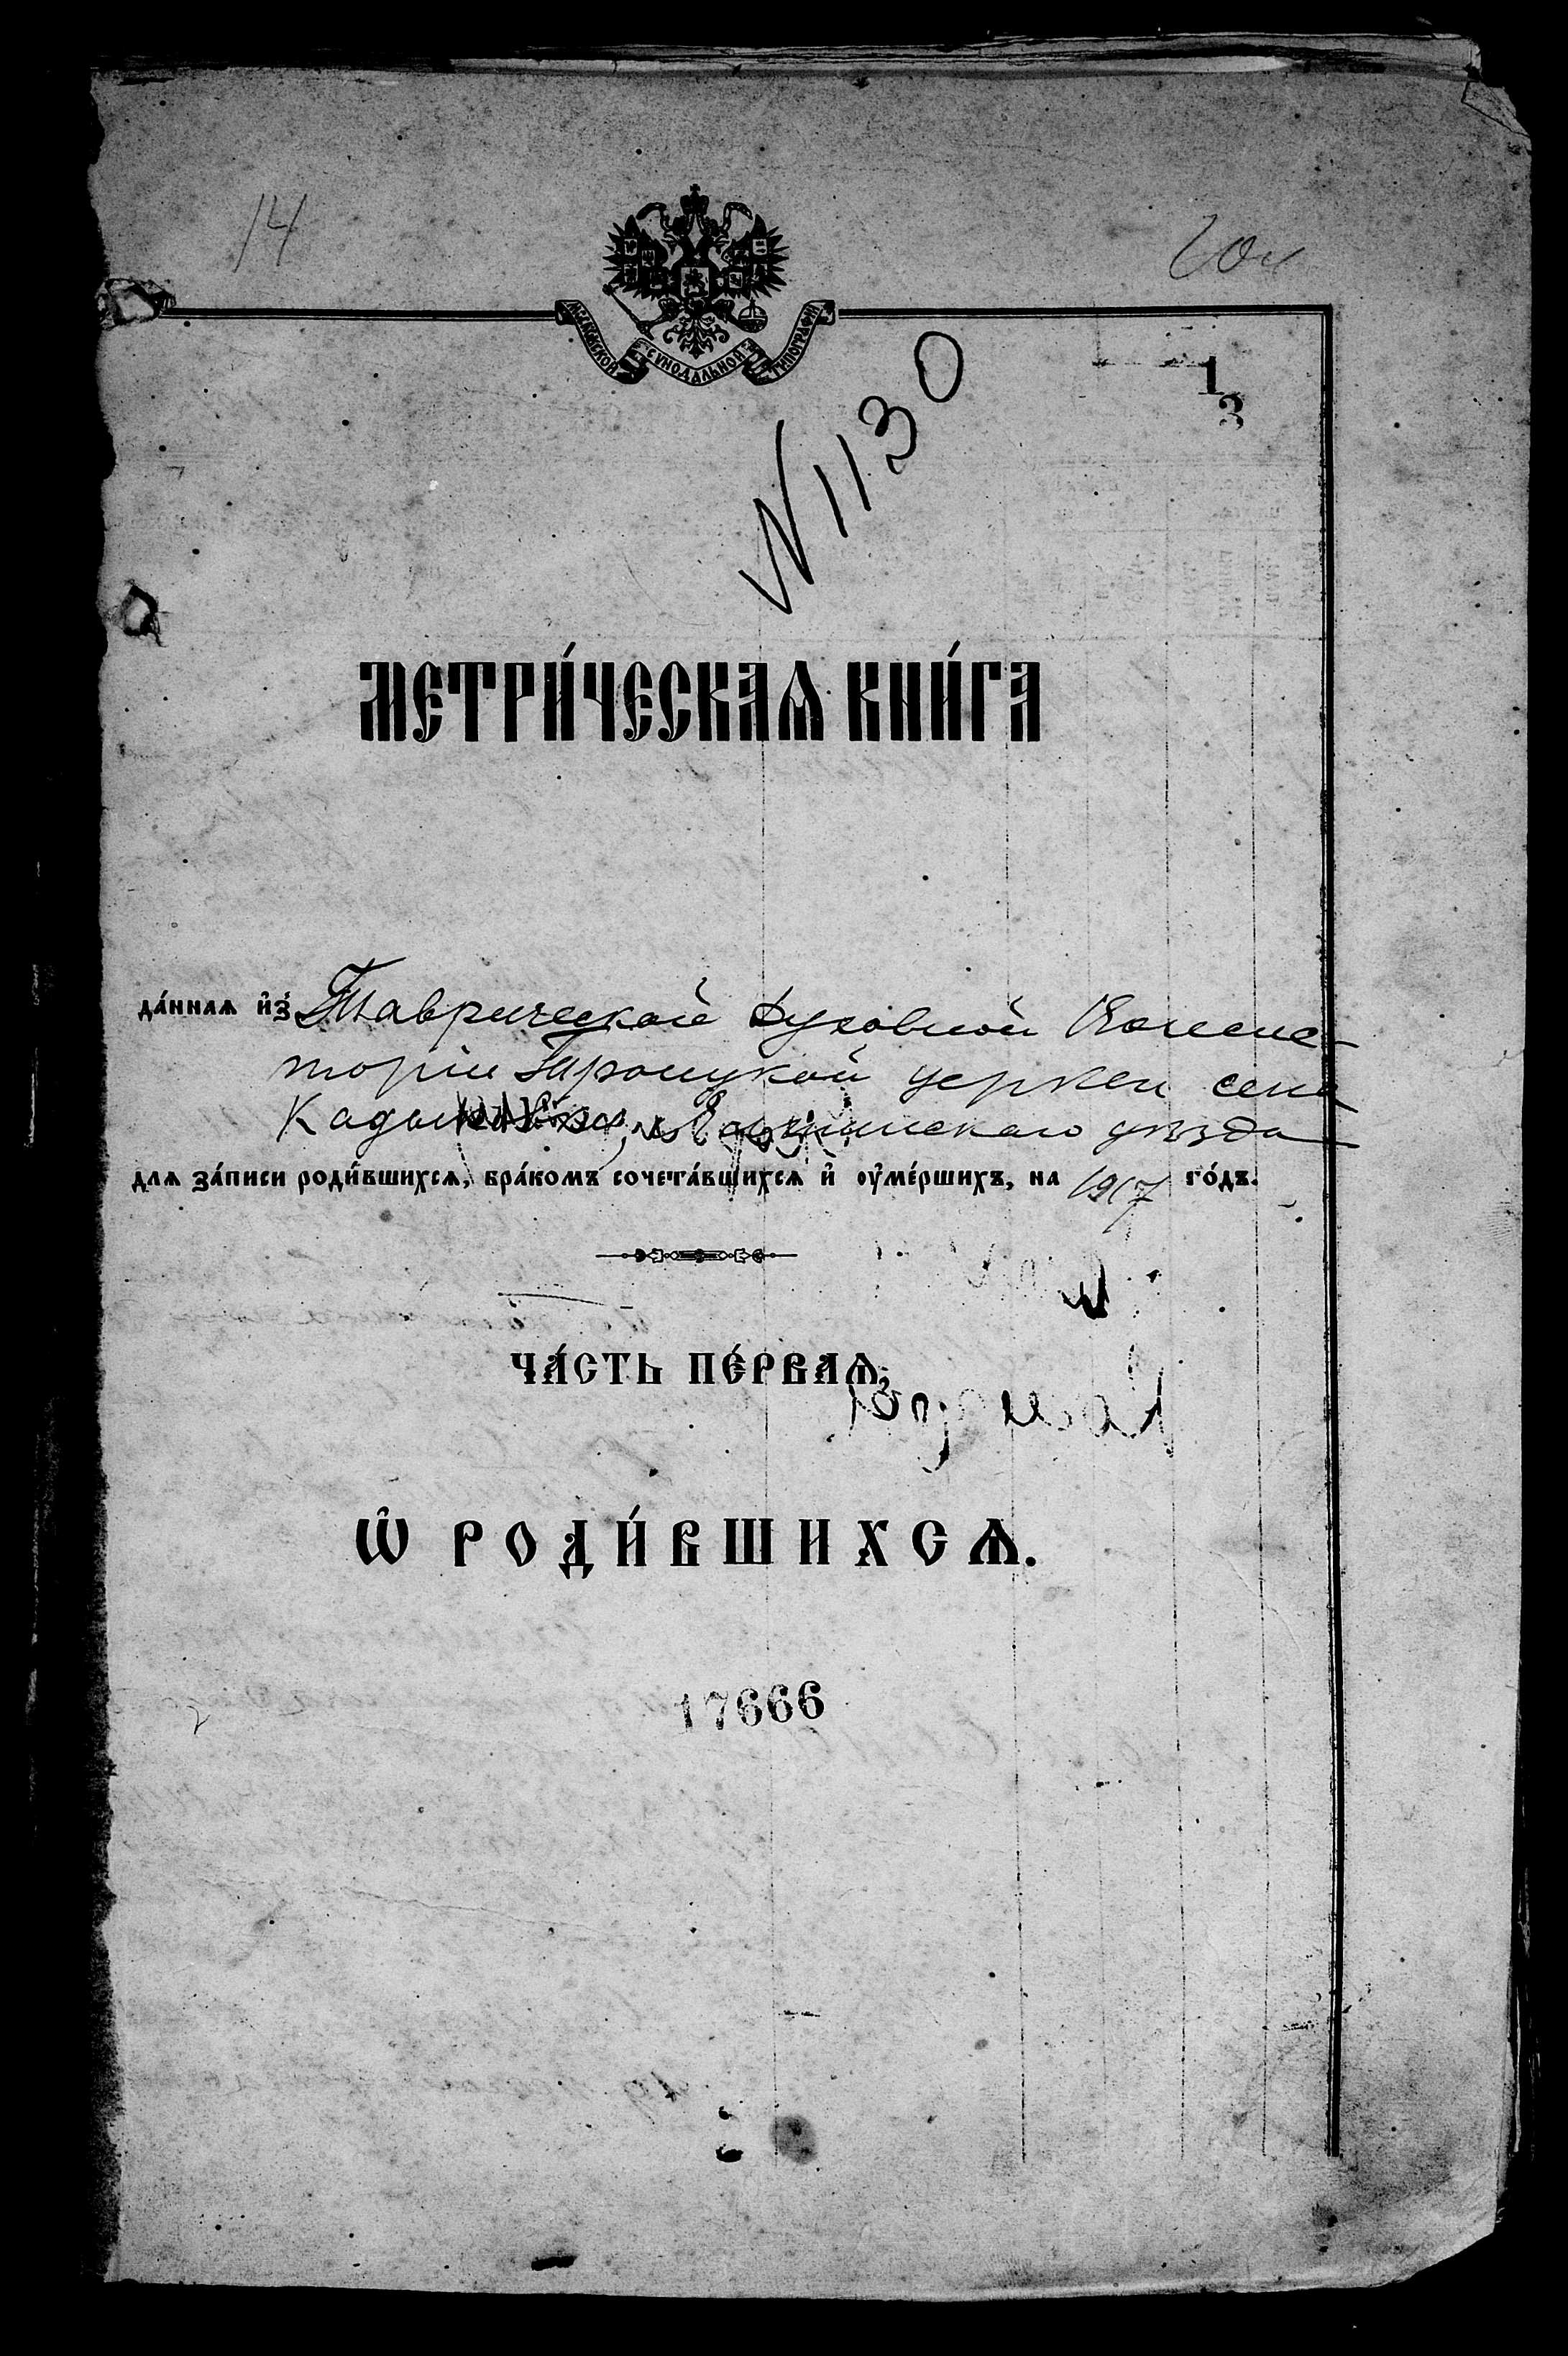 14
МОСКОВСКОЙ СУНОДАЛЬНОЙ ТИПОГРАФІИ
1
3
N 1130
МЕТРИ́ЧЕСКАѦ КНИ́ГА
да́ннаѧ и҆з̾ Таврической Духовной Консис-
торіи Троицкой церкви села
уѣзда
длѧ за́писи роди́вшихсѧ, бра́комъ сочета́вшихсѧ и҆ оу҆ме́ршихъ, на 1917 го́дъ.
ЧА́СТЬ ПЕ́РВАѦ,
Ѡ҆ РОДИ́ВШИХСѦ.
17666
2